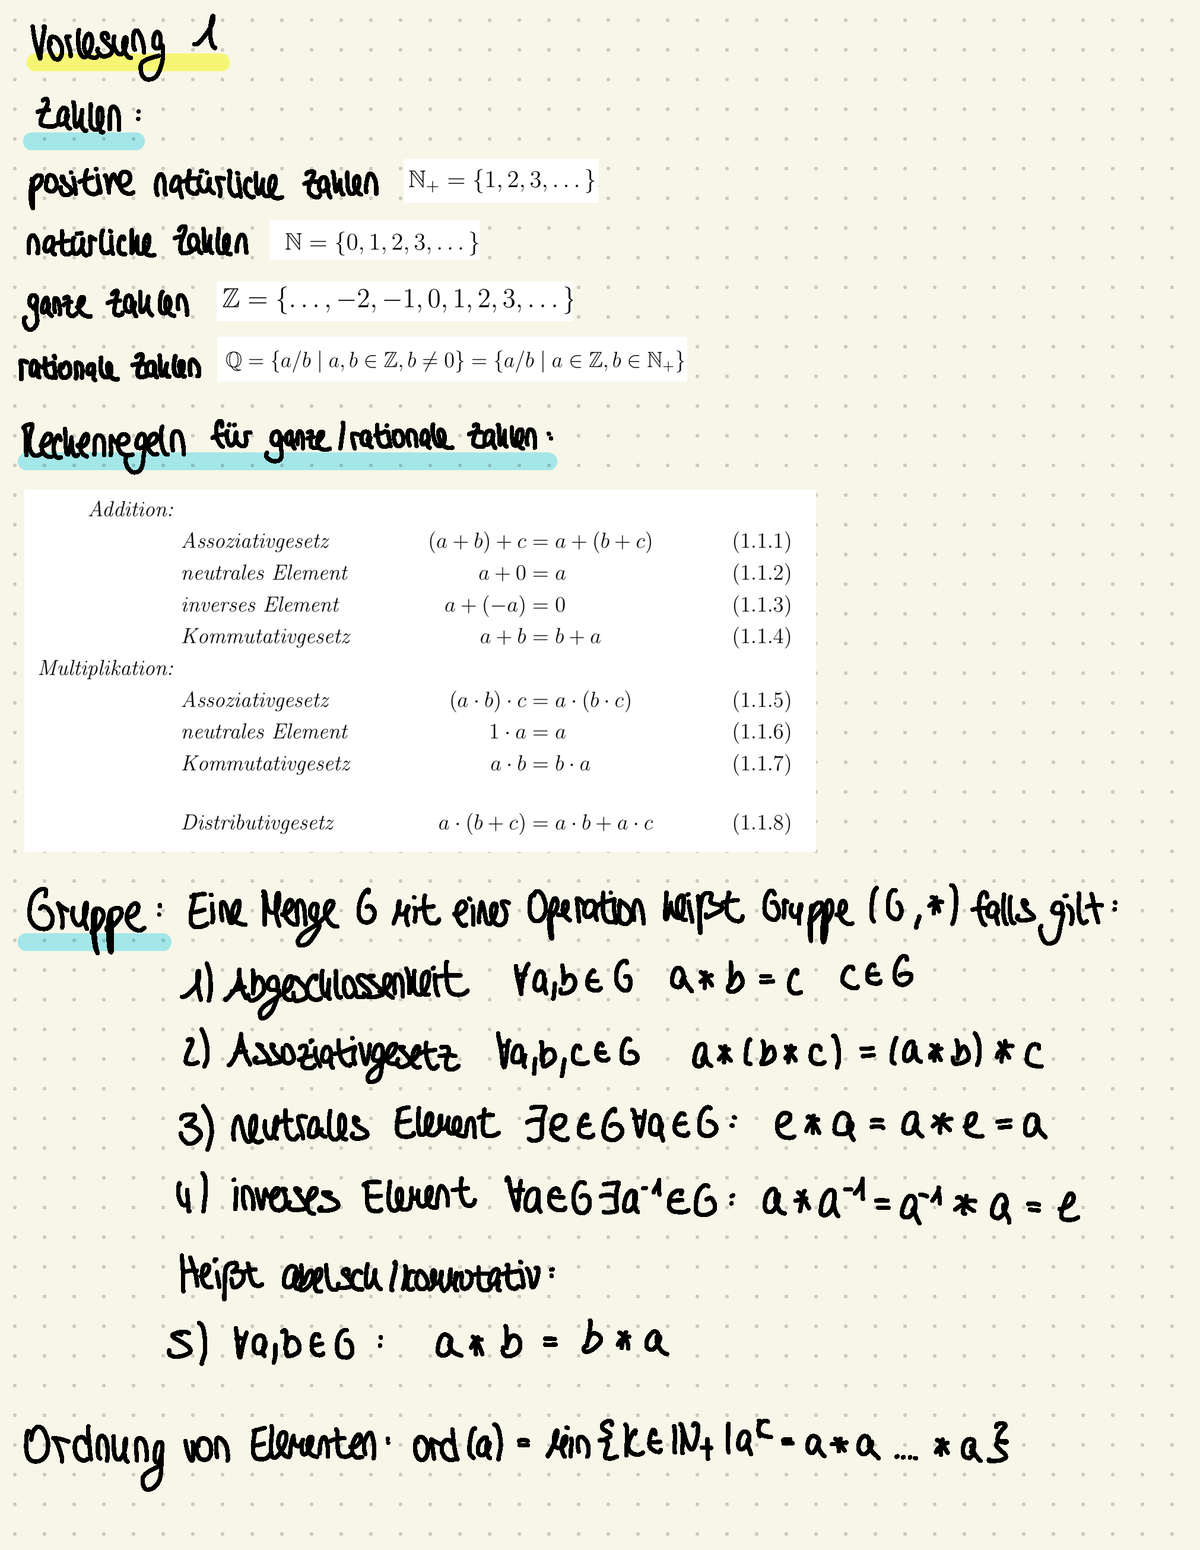 Vorlesung 1
Zahlen:
positive natürliche Zahlen ℕ₊ = {1, 2, 3, . . . }
natürliche Zahlen ℕ = {0, 1, 2, 3, . . . }
ganze Zahlen ℤ = {. . . , −2, −1, 0, 1, 2, 3, . . . }
rationale Zahlen ℚ = {a/b | a, b ∈ ℤ, b ≠ 0} = {a/b | a ∈ ℤ, b ∈ ℕ₊}
Rechenregeln für ganze/rationale Zahlen:
Addition:
Assoziativgesetz (a + b) + c = a + (b + c) (1.1.1)
neutrales Element a + 0 = a (1.1.2)
inverses Element a + (−a) = 0 (1.1.3)
Kommutativgesetz a + b = b + a (1.1.4)
Multiplikation:
Assoziativgesetz (a · b) · c = a · (b · c) (1.1.5)
neutrales Element 1 · a = a (1.1.6)
Kommutativgesetz a · b = b · a (1.1.7)
Distributivgesetz a · (b + c) = a · b + a · c (1.1.8)
Gruppe: Eine Menge G mit einer Operation heißt Gruppe (G,*) falls gilt:
1) Abgeschlossenheit ∀a,b∈G a * b = c c∈G
2) Assoziativgesetz ∀a,b,c∈G a*(b*c) = (a*b)*c
3) neutrales Element ∃e∈G∀a∈G: e*a = a*e = a
4) inverses Element ∀a∈G∃a⁻¹∈G: a*a⁻¹ = a⁻¹*a = e
Heißt abelsch/kommutativ:
5) ∀a,b∈G : a * b = b * a
Ordnung von Elementen: ord(a) = min{k∈ℕ₊|aᵏ = a*a .... *a}